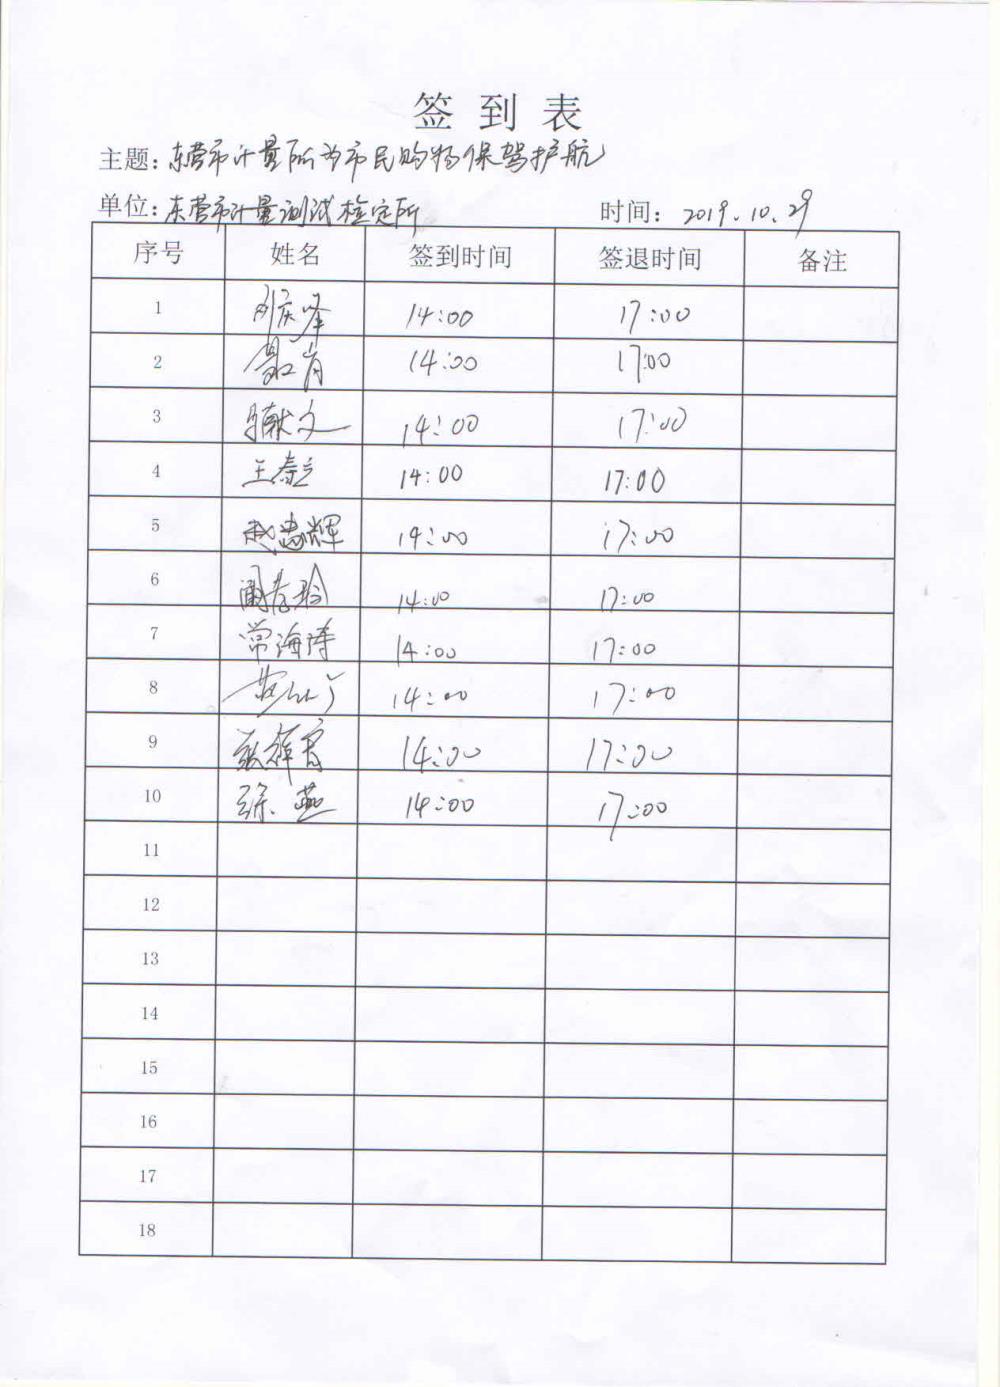 签到表
主题：东营市计量所为市民购物保驾护航
单位：东营市计量测试检定所 时间：2019.10.29
序号 姓名 签到时间 签退时间 备注
1 14:00 17:00
2 14:00 17:00
3 14:00 17:00
4 王 14:00 17:00
5 赵志辉 14:00 17:00
6 14:00 17:00
7 常海涛 14:00 17:00
8 14:00 17:00
9 14:00 17:00
10 徐燕 14:00 17:00
11
12
13
14
15
16
17
18